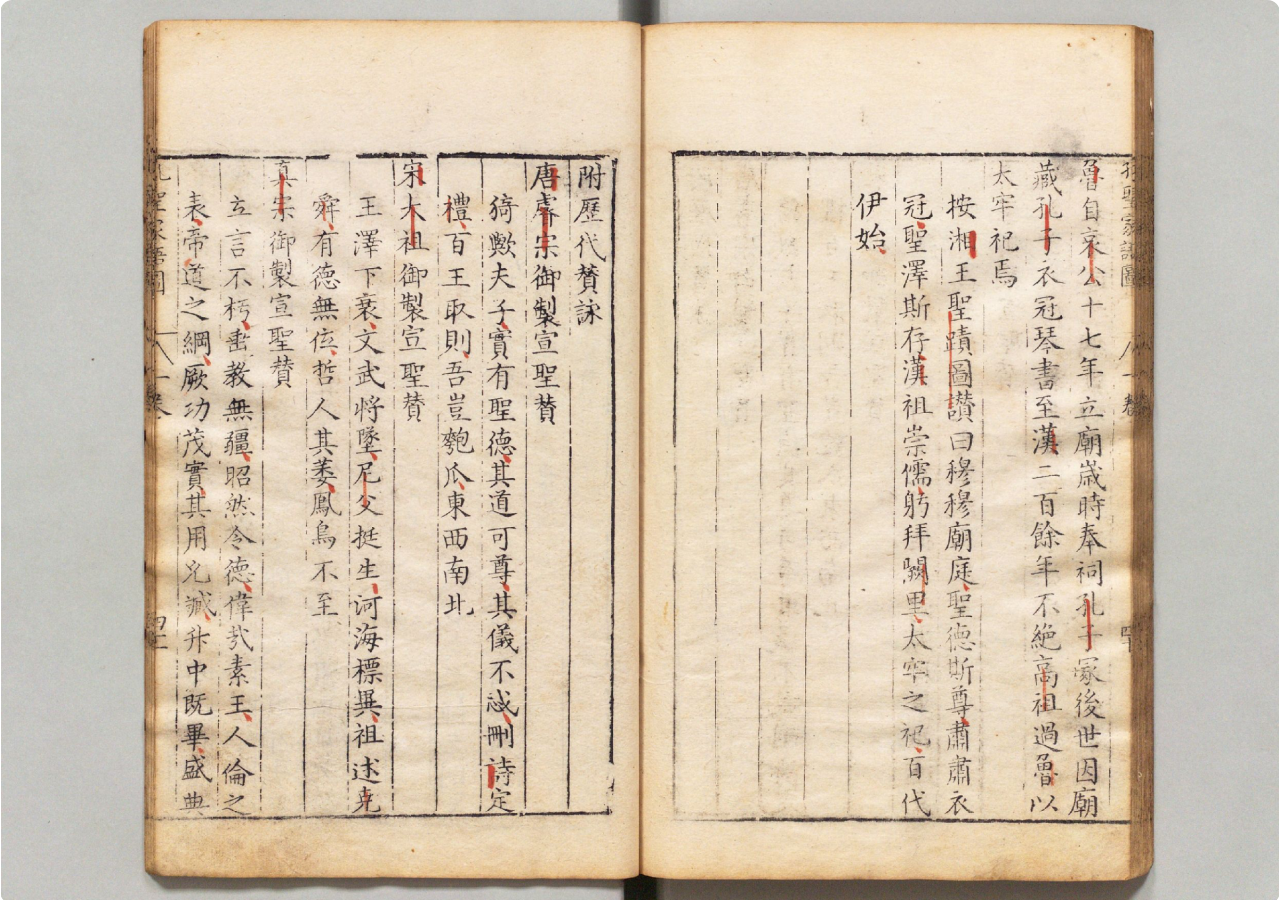 魯自哀公十七年立廟歲時奉祠孔子冢後世因廟
藏孔子衣冠琴書至漢二百餘年不絶高祖過魯以
太牢祀焉
按湘王聖蹟圖讃曰穆穆廟庭聖德斯尊肅肅衣
冠聖澤斯存漢祖崇儒躬拜闕里太牢之祀百代
伊始
附歷代賛詠
唐睿宗御製宣聖賛
猗歟夫子實有聖德其道可尊其儀不忒刪詩定
禮百王取則吾豈匏瓜東西南北
宋太祖御製宣聖賛
王澤下衰文武將墜尼父挺生河海標異祖述堯
舜有德無位哲人其萎鳳鳥不至
真宗御製宣聖賛
立言不朽垂教無疆昭然令德偉哉素王人倫之
表帝道之綱厥功茂實其用允臧升中既畢盛典